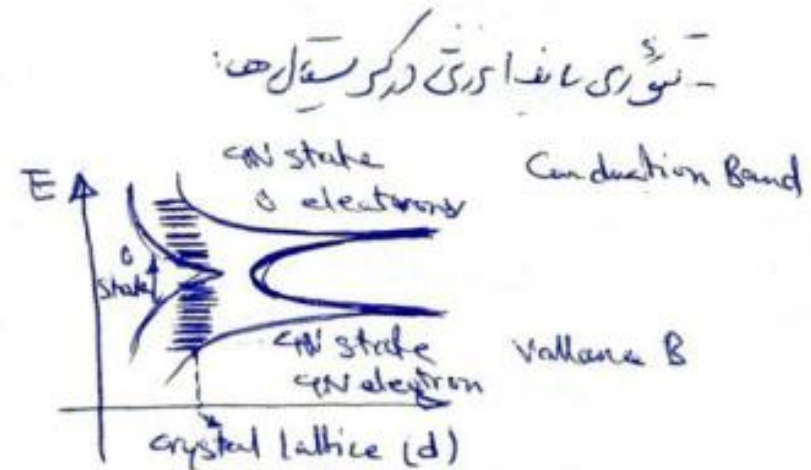 - تئوری باند انرژی در کریستال ها:
4N state
0 electrons
Conduction Band
E
0
State
4N state
4N electron
Vallance B
crystal lattice (d)